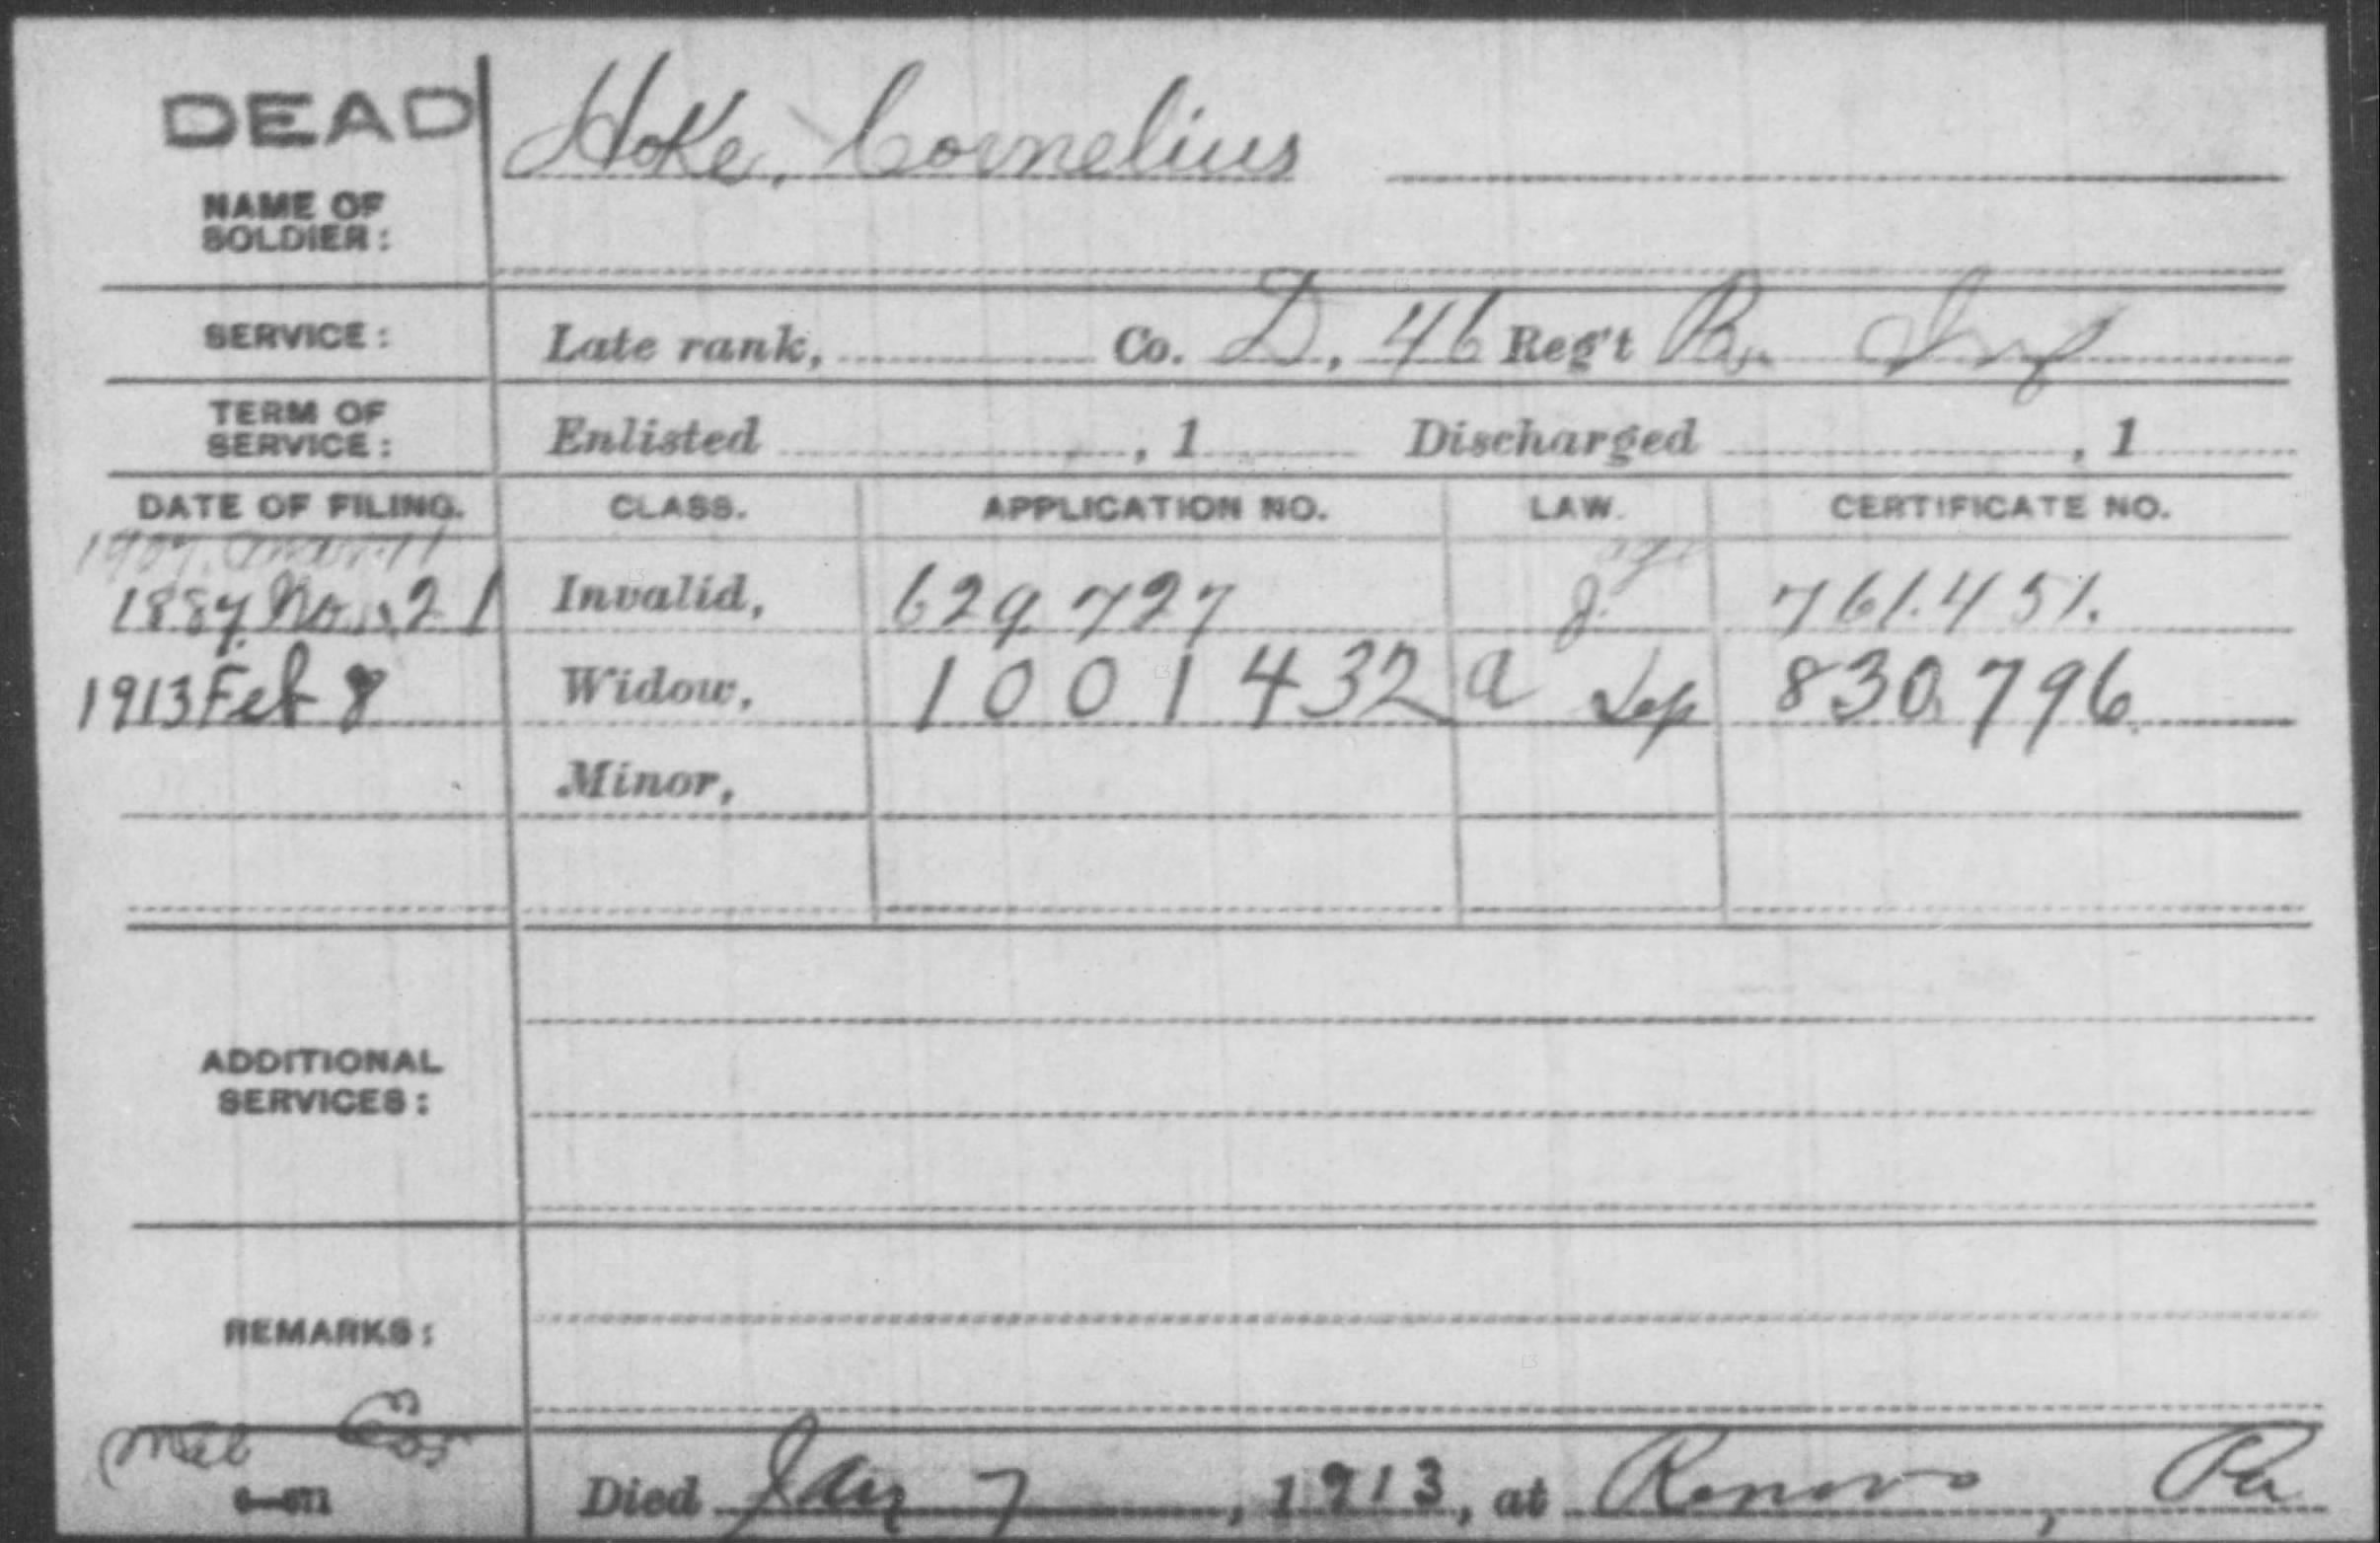 DEAD
Hoke, Cornelius
NAME OF
SOLDIER:
SERVICE: Late rank, Co. D, 46 Reg't Pa. Inf
TERM OF
SERVICE: Enlisted , 1 Discharged , 1
DATE OF FILING. CLASS. APPLICATION NO. LAW. CERTIFICATE NO.
1907. Mar. 11 age
1887. Nov. 21 Invalid, 629.727 J. 761.451.
1913 Feb 8 Widow, 1001432 a 830.796.
Minor,
ADDITIONAL
SERVICES:
REMARKS:
Died Jan 7, 1913, at Renovo, Pa